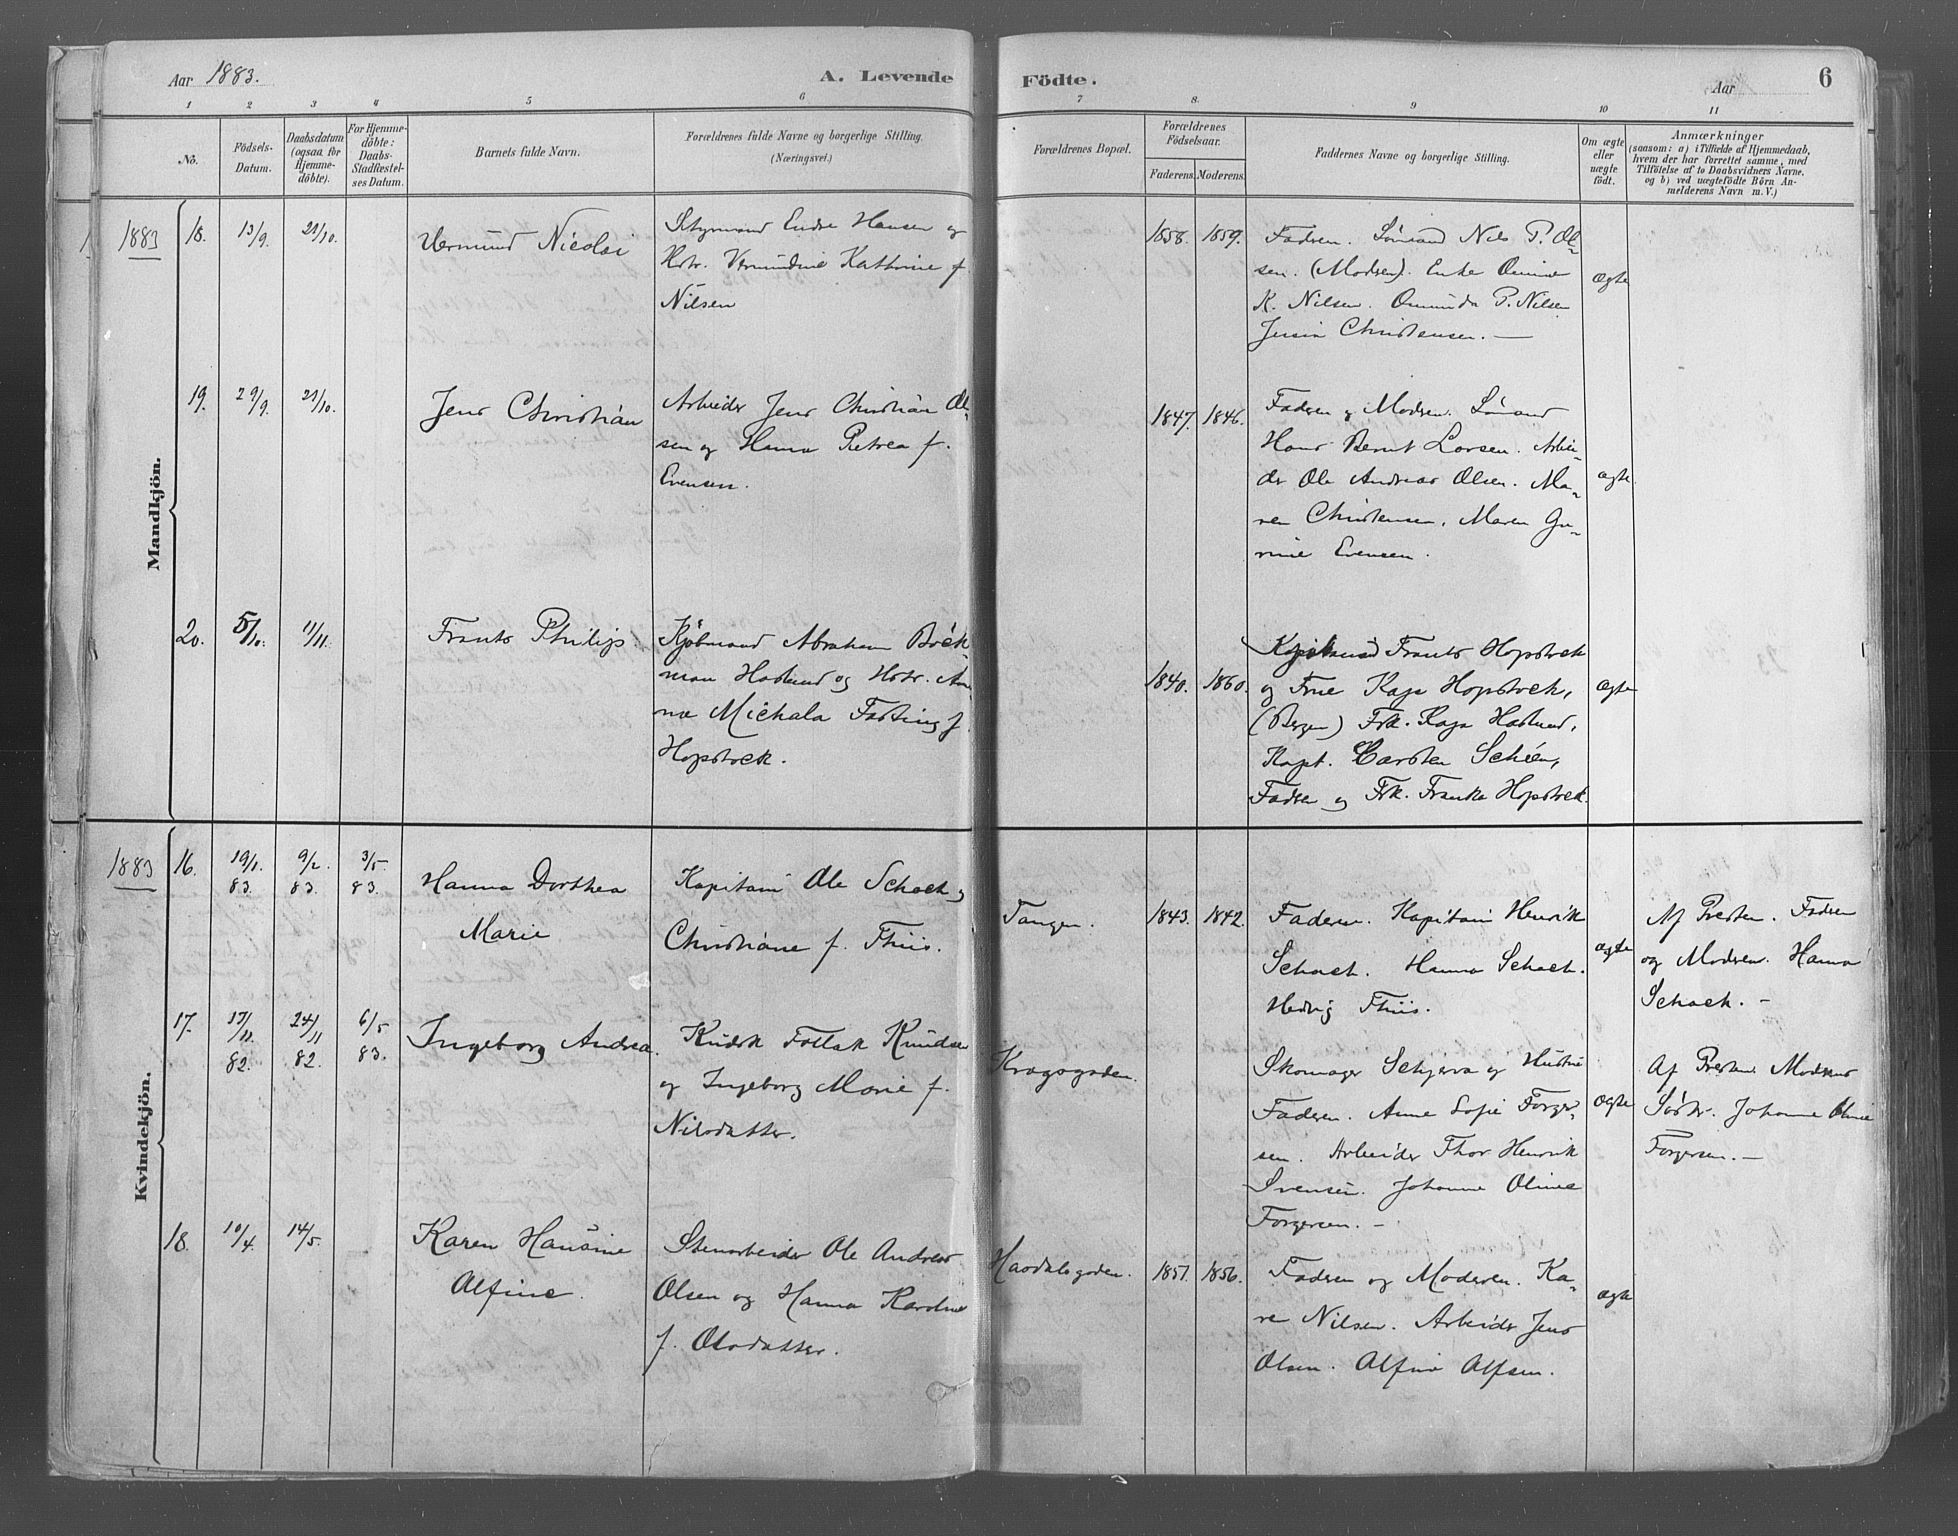 Aar 1883.
A. Levende Födte.
Aar
6
1 2 3 4 5 6 7 8. 9 10 11
No.
Födsels-
Datum.
Daabsdatum
(ogsaa for
Hjemme-
döbte).
For Hjemme-
döbte:
Daabs-
Stadfæstel-
ses Datum.
Barnets fulde Navn.
Forældrenes fulde Navne og borgerlige Stilling.
(Næringsvei.)
Forældrenes Bopæl.
Forældrenes
Födselsaar.
Faderens. Moderens.
Faddernes Navne og borgerlige Stilling.
Om ægte
eller
uægte
födt.
Anmærkninger
(saasom: a) i Tilfælde af Hjemmedaab,
hvem der har forrettet samme, med
Tilföielse af to Daabsvidners Navne,
og b) ved uægtefödte Börn An-
melderens Navn m. V.)
Mandkjön.
1883
18. 13/9. 21/10.
Vermund Nicolai
Styrmand Endre Hansen og
Hstr. Vermundine Kathrine f.
Nilsen
1858. 1859.
Fadren. Sömand Nils P. Ol-
sen. (Modren). Enke
K. Nilsen. P. Nilsen
Christensen. —
ægte
19. 29/9. 21/10.
Jens Christian
Arbeider Jens Christian Ol-
sen og Hanna Petrea f.
Evensen.
1847. 1846.
Fadren og Modren. Sömand
Hans Bernt Larsen. Arbei-
der Ole Andreas Olsen. Ma-
ren Christensen, Maren Gu-
rine Evensen.
ægte
20. 5/10. 11/11.
Frants Philip
Kjöbmand Abraham Böck-
man Haslund og Hstr. An-
na Michala Fasting f.
Hopstock.
1840. 1860.
Frants Hopstock
og Frue Kaja Hopstock,
(Bergen) Frk. Kaja Haslund,
Kapt. Carsten Schéen,
Fadren og Frk. Frantza Hopstock.
ægte
Kvindekjön.
1883
16. 19/1. 83. 9/2. 83. 3/5 83.
Hanna Dorthea
Marie
Kapitain Ole Schack og
Christiane f. Thiis.
Tangen.
1843. 1842.
Fadren. Kapitain Henrik
Schack. Hanna Schack.
Hedvig Thiis.
ægte
Af Presten. Fadren
og Modren. Hanna
Schack. —
17. 82. 24/11 82. 6/5 83.
Ingeborg Andrea.
Kudsk Tollak Knudsen
og Ingeborg Marie f.
Nilsdatter.
Kragsgaden.
Skomager Schjerva og Hustru
Fadren. Anne Sofie Torger-
sen. Arbeider Thor Henrik
Svensen. Johanne Oline
Torgersen. —
ægte
Af Presten. Modrens
Söster. Johanne Oline
Torgersen. —
18. 10/4. 14/5.
Karen Hansine
Alfine.
Stenarbeider Ole Andreas
Olsen og Hanna Karoline
f. Olsdatter.
Haasdalsgaden.
1851. 1856.
Fadren og Modren. Ka-
ren Nilsen. Arbeider Jens
Olsen. Alfine Alfsen.
ægte